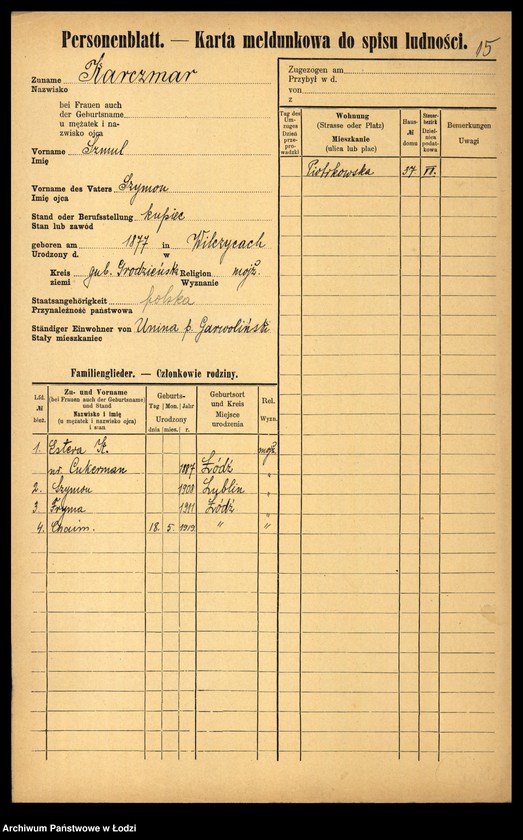 Personenblatt. — Karta meldunkowa do spisu ludności.
15
Zuname Karczmar
Nazwisko
bei Frauen auch
der Geburtsname
u mężatek i na-
zwisko ojca
Vorname Szmul
Imię
Vorname des Vaters Szymon
Imię ojca
Stand oder Berufsstellung kupiec
Stan lub zawód
geboren am 1877 in Wilczycach
Urodzony d. w
Kreis gub. Grodzieńsk Religion mojż.
ziemi Wyznanie
Staatsangehörigkeit polska
Przynależność państwowa
Ständiger Einwohner von Unina p. Garwoliński
Stały mieszkaniec
Zugezogen am
Przybył w d.
von
z
Tag des Um-zuges Dzień prze-prowadzki
Wohnung
(Strasse oder Platz)
Mieszkanie
(ulica lub plac)
Haus-
№
domu
Steuer-
bezirk
Dziel-
nica
podat-
kowa
Bemerkungen
Uwagi
Piotrkowska 37 VI.
Familienglieder. — Członkowie rodziny.
Lfd.
№
bież.
Zu- und Vorname
(bei Frauen auch der Geburtsname)
und Stand
Nazwisko i imię
(u mężatek i nazwisko ojca)
i stan
Geburts-
Tag Mon. Jahr
Urodzony
dnia mies. r.
Geburtsort
und Kreis
Miejsce
urodzenia
Rel.
Wyzn.
1. Estera K. mojż.
nr. Cukerman 1887 Łódź "
2. Szymon 1908 Lublin "
3. Fryma 1911 Łódź "
4. Chaim. 18. 5. 1919. " "
Archiwum Państwowe w Łodzi